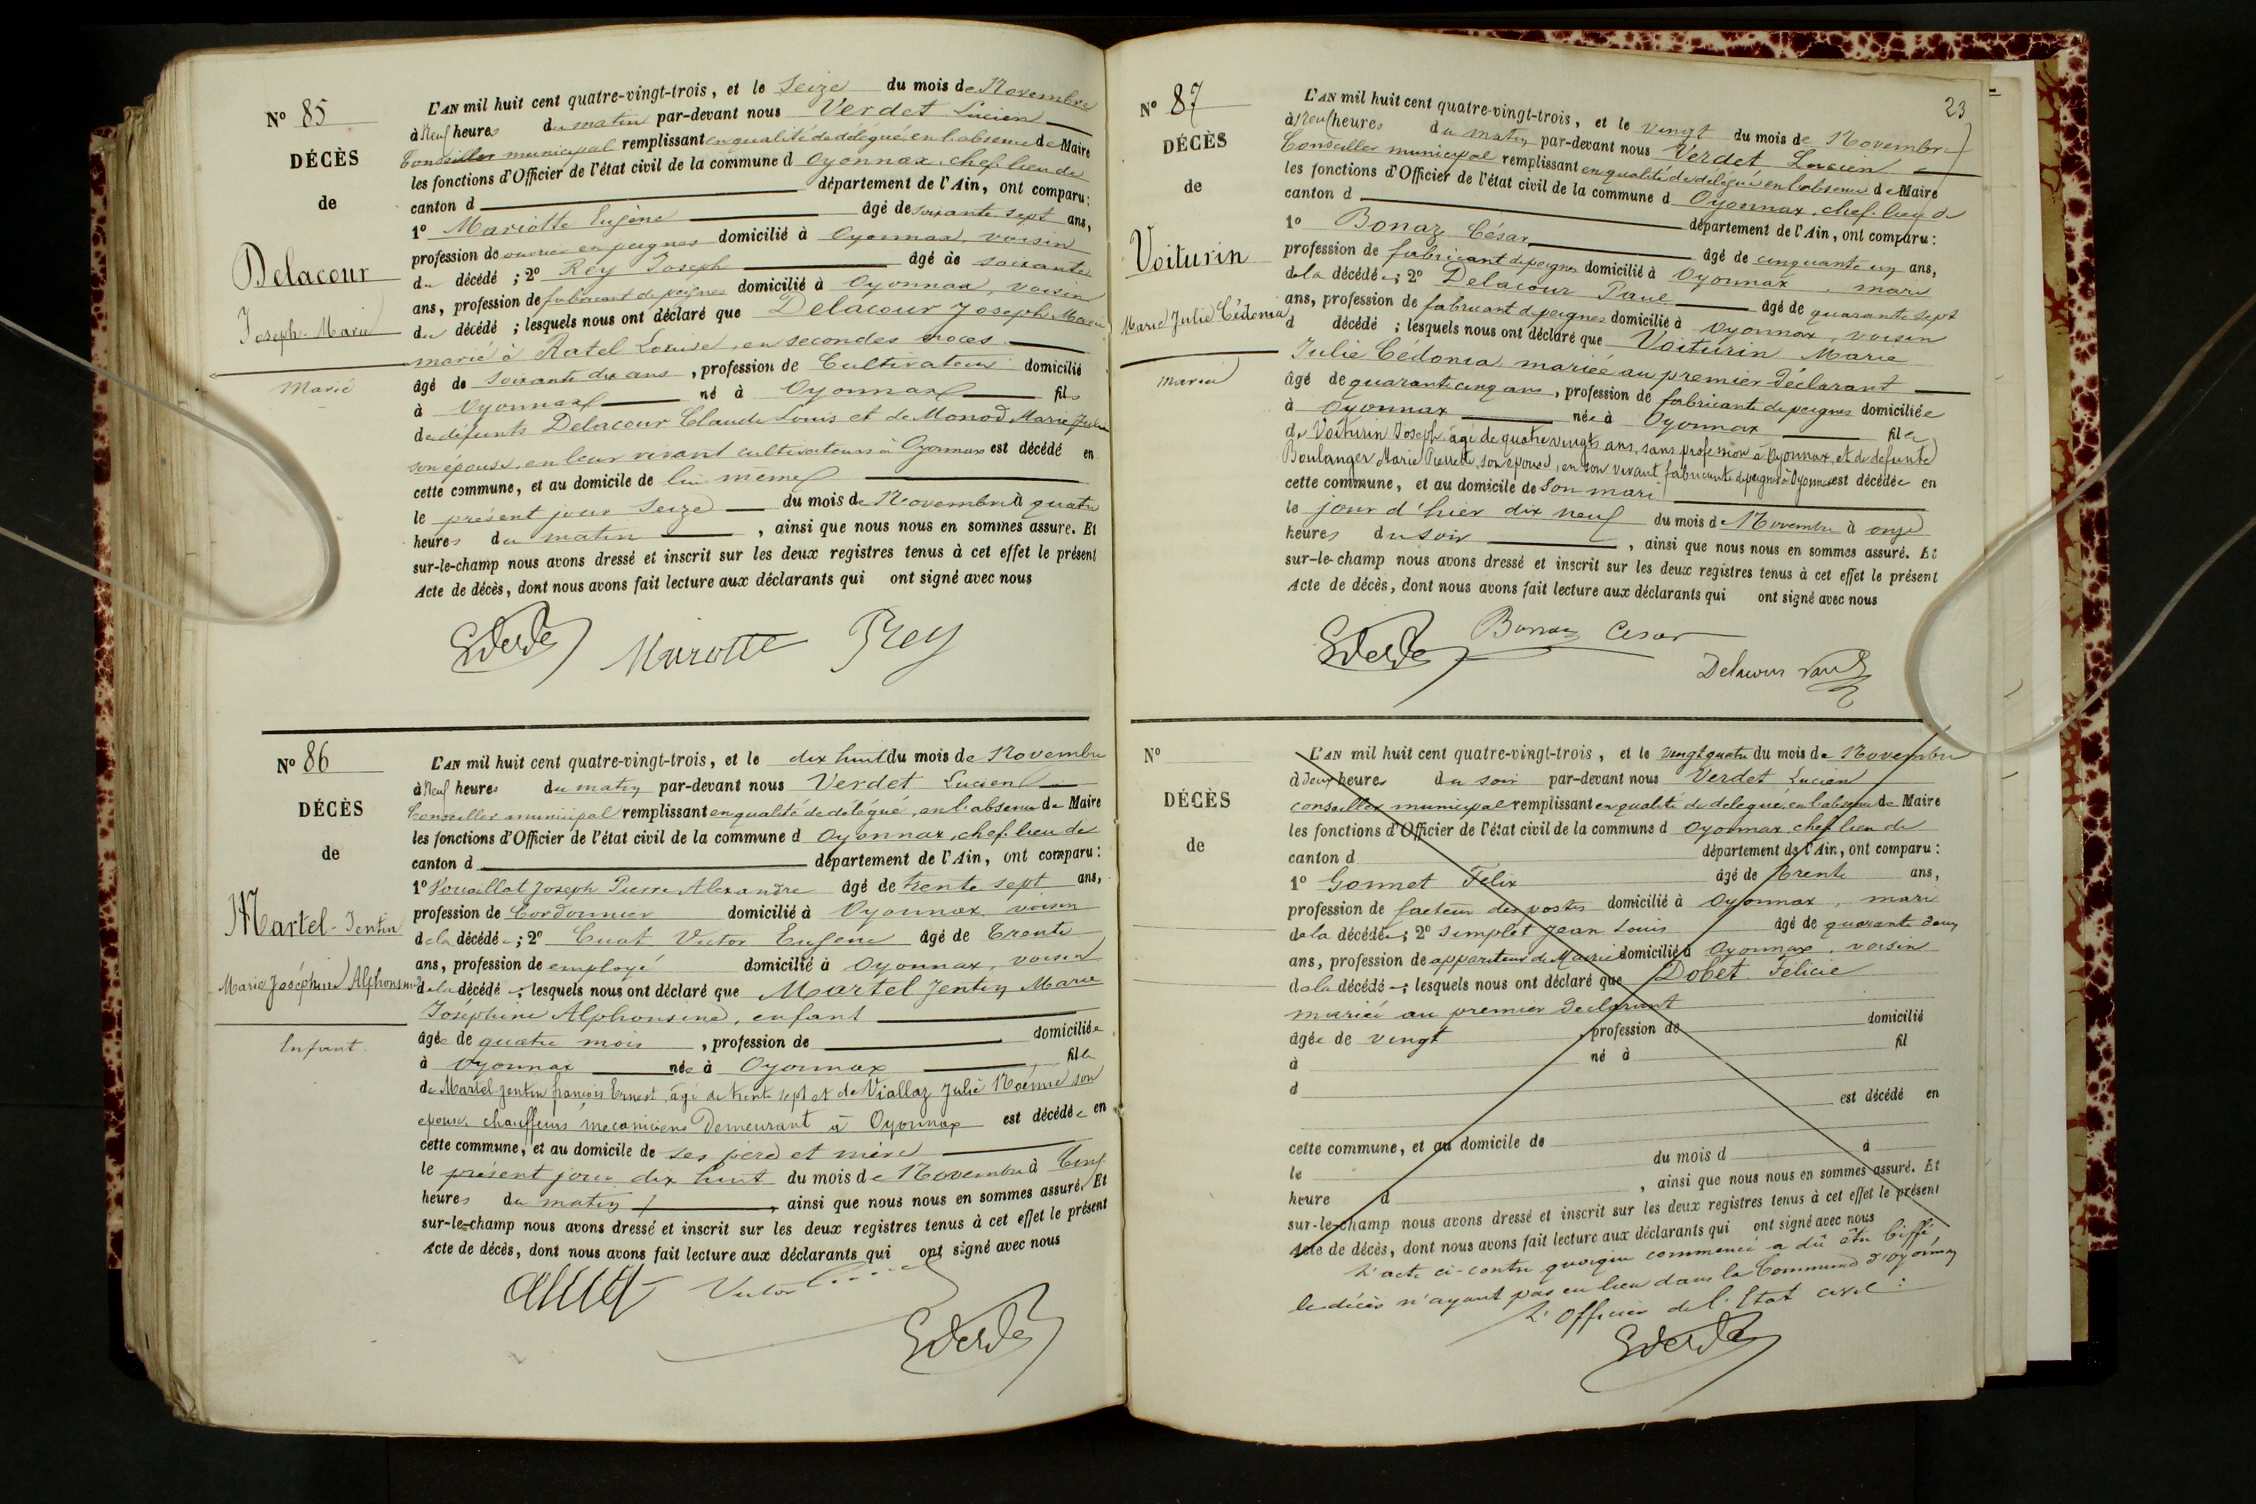 N° 85
DÉCÈS
de
Delacour
Joseph Marie
Marié
L'AN mil huit cent quatre-vingt-trois, et le Seize du mois de Novembre
à Neuf heures du matin par-devant nous Verdet Lucien
Conseiller municipal remplissant en qualité de délégué, en l'absence de Maire
les fonctions d'Officier de l'état civil de la commune d Oyonnax, chef lieu de
canton d département de l'Ain, ont comparu :
1° Mariotte Eugène âgé de soixante sept ans,
profession de ouvrier en peignes domicilié à Oyonnax, voisin
du décédé ; 2° Rey Joseph âgé de soixante
ans, profession de fabricant de peignes domicilié à Oyonnax, voisin
du décédé ; lesquels nous ont déclaré que Delacour Joseph Marie
marié à Ratel Louise, en secondes noces
âgé de soixante dix ans, profession de Cultivateur domicilié
à Oyonnax né à Oyonnax fils
de défunts Delacour Claude Louis et de Monod Marie Julie
son épouse, en leur vivant cultivateurs à Oyonnax est décédé en
cette commune, et au domicile de lui même
le présent jour Seize du mois de Novembre à quatre
heures du matin, ainsi que nous nous en sommes assuré. Et
sur-le-champ nous avons dressé et inscrit sur les deux registres tenus à cet effet le présent
Acte de décès, dont nous avons fait lecture aux déclarants qui ont signé avec nous
Mariotte Rey
N° 86
DÉCÈS
de
Martel-Jentin
Marie Joséphine Alphonsine
Enfant
L'AN mil huit cent quatre-vingt-trois, et le dix huit du mois de Novembre
à Neuf heures du matin par-devant nous Verdet Lucien
Conseiller municipal remplissant en qualité de délégué, en l'absence de Maire
les fonctions d'Officier de l'état civil de la commune d Oyonnax, chef lieu de
canton d département de l'Ain, ont comparu :
1° Vouaillat Joseph Pierre Alexandre âgé de trente sept ans,
profession de Cordonnier domicilié à Oyonnax voisin
de la décédée ; 2° Cuat Victor Eugene âgé de Trente
ans, profession de employé domicilié à Oyonnax, voisin
de la décédé ; lesquels nous ont déclaré que Martel Jentin Marie
Joséphine Alphonsine, enfant
âgée de quatre mois, profession de domiciliée
à Oyonnax née à Oyonnax fille
de Martel Jentin françois Ernest, âgé de trente sept et de Viallaz Julie Noémie son
epouse, chauffeurs mécaniciens Demeurant à Oyonnax est décédée en
cette commune, et au domicile de ses père et mère
le présent jour dix huit du mois de Novembre à Cinq
heures du matin, ainsi que nous nous en sommes assuré. Et
sur-le-champ nous avons dressé et inscrit sur les deux registres tenus à cet effet le présent
Acte de décès, dont nous avons fait lecture aux déclarants qui ont signé avec nous
Victor
23
N° 87
DÉCÈS
de
Voiturin
Marie Julie Cédonia
mariée
L'AN mil huit cent quatre-vingt-trois, et le vingt du mois de Novembre
à Neuf heures du matin par-devant nous Verdet Lucien
Conseiller municipal remplissant en qualité de délégué en l'absence de Maire
les fonctions d'Officier de l'état civil de la commune d Oyonnax, chef-lieu de
canton d département de l'Ain, ont comparu :
1° Bonaz César âgé de cinquante un ans,
profession de fabricant de peignes domicilié à Oyonnax, mari
de la décédée ; 2° Delacour Paul âgé de quarante sept
ans, profession de fabricant de peignes domicilié à Oyonnax, voisin
d décédé ; lesquels nous ont déclaré que Voiturin Marie
Julie Cédonia, mariée au premier déclarant
âgé de quarante cinq ans, profession de fabricante de peignes domiciliée
à Oyonnax née à Oyonnax fille
de Voiturin Joseph âgé de quatre vingts ans, sans profession à Oyonnax, et de defunte
Boulanger Marie Pierrette, son épouse, en son vivant fabricante de peignes à Oyonnax est décédée en
cette commune, et au domicile de Son mari
le jour d'hier dix neuf du mois de Novembre à onze
heures du soir, ainsi que nous nous en sommes assuré. Et
sur-le-champ nous avons dressé et inscrit sur les deux registres tenus à cet effet le présent
Acte de décès, dont nous avons fait lecture aux déclarants qui ont signé avec nous
Bonaz Cesar
Delacour Paul
N°
DÉCÈS
de
L'AN mil huit cent quatre-vingt-trois, et le vingt quatre du mois de Novembre
à Deux heures du soir par-devant nous Verdet Lucien
conseiller municipal remplissant en qualité de delegué, en l'absence de Maire
les fonctions d'Officier de l'état civil de la commune d Oyonnax, chef lieu de
canton d département de l'Ain, ont comparu :
1° Gonnet Félix âgé de Trente ans,
profession de facteur des postes domicilié à Oyonnax, mari
de la décédée ; 2° Simplet Jean Louis âgé de quarante deux
ans, profession de appariteur de Mairie domicilié à Oyonnax, voisin
de la décédé ; lesquels nous ont déclaré que Dobet Felicie
mariée au premier declarant
âgée de vingt, profession de domicilié
à né à fil
d
est décédé en
cette commune, et au domicile de
le du mois d à
heure d, ainsi que nous nous en sommes assuré. Et
sur-le-champ nous avons dressé et inscrit sur les deux registres tenus à cet effet le présent
Acte de décès, dont nous avons fait lecture aux déclarants qui ont signé avec nous
L'acte ci-contre quoique commencé a dû être biffé,
le décès n'ayant pas eu lieu dans la Commune d'Oyonnax
L'Officier de l'Etat civil :